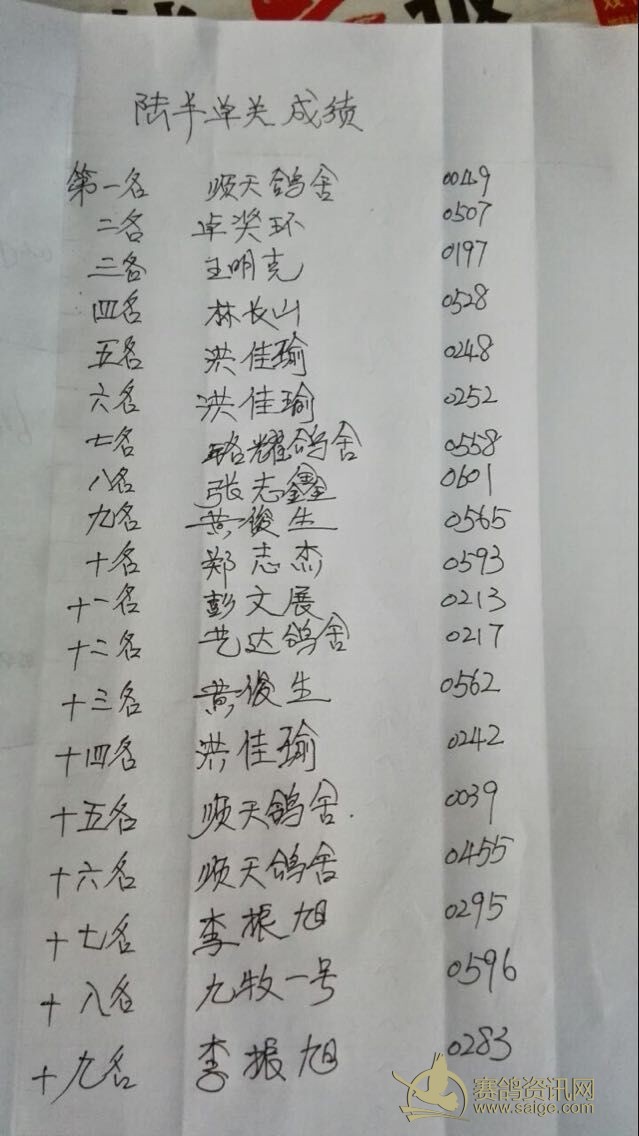 陆半单关成绩
第一名 顺天鸽舍 0049
二名 卓奖环 0507
三名 王明克 0197
四名 林长山 0528
五名 洪佳瑜 0248
六名 洪佳瑜 0252
七名 铭耀鸽舍 0558
八名 张志鑫 0601
九名 黄俊生 0565
十名 郑志杰 0593
十一名 彭文展 0213
十二名 艺达鸽舍 0217
十三名 黄俊生 0562
十四名 洪佳瑜 0242
十五名 顺天鸽舍. 0039
十六名 顺天鸽舍 0455
十七名 李振旭 0295
十八名 九牧一号 0596
十九名 李振旭 0283
赛鸽资讯网
www.saige.com